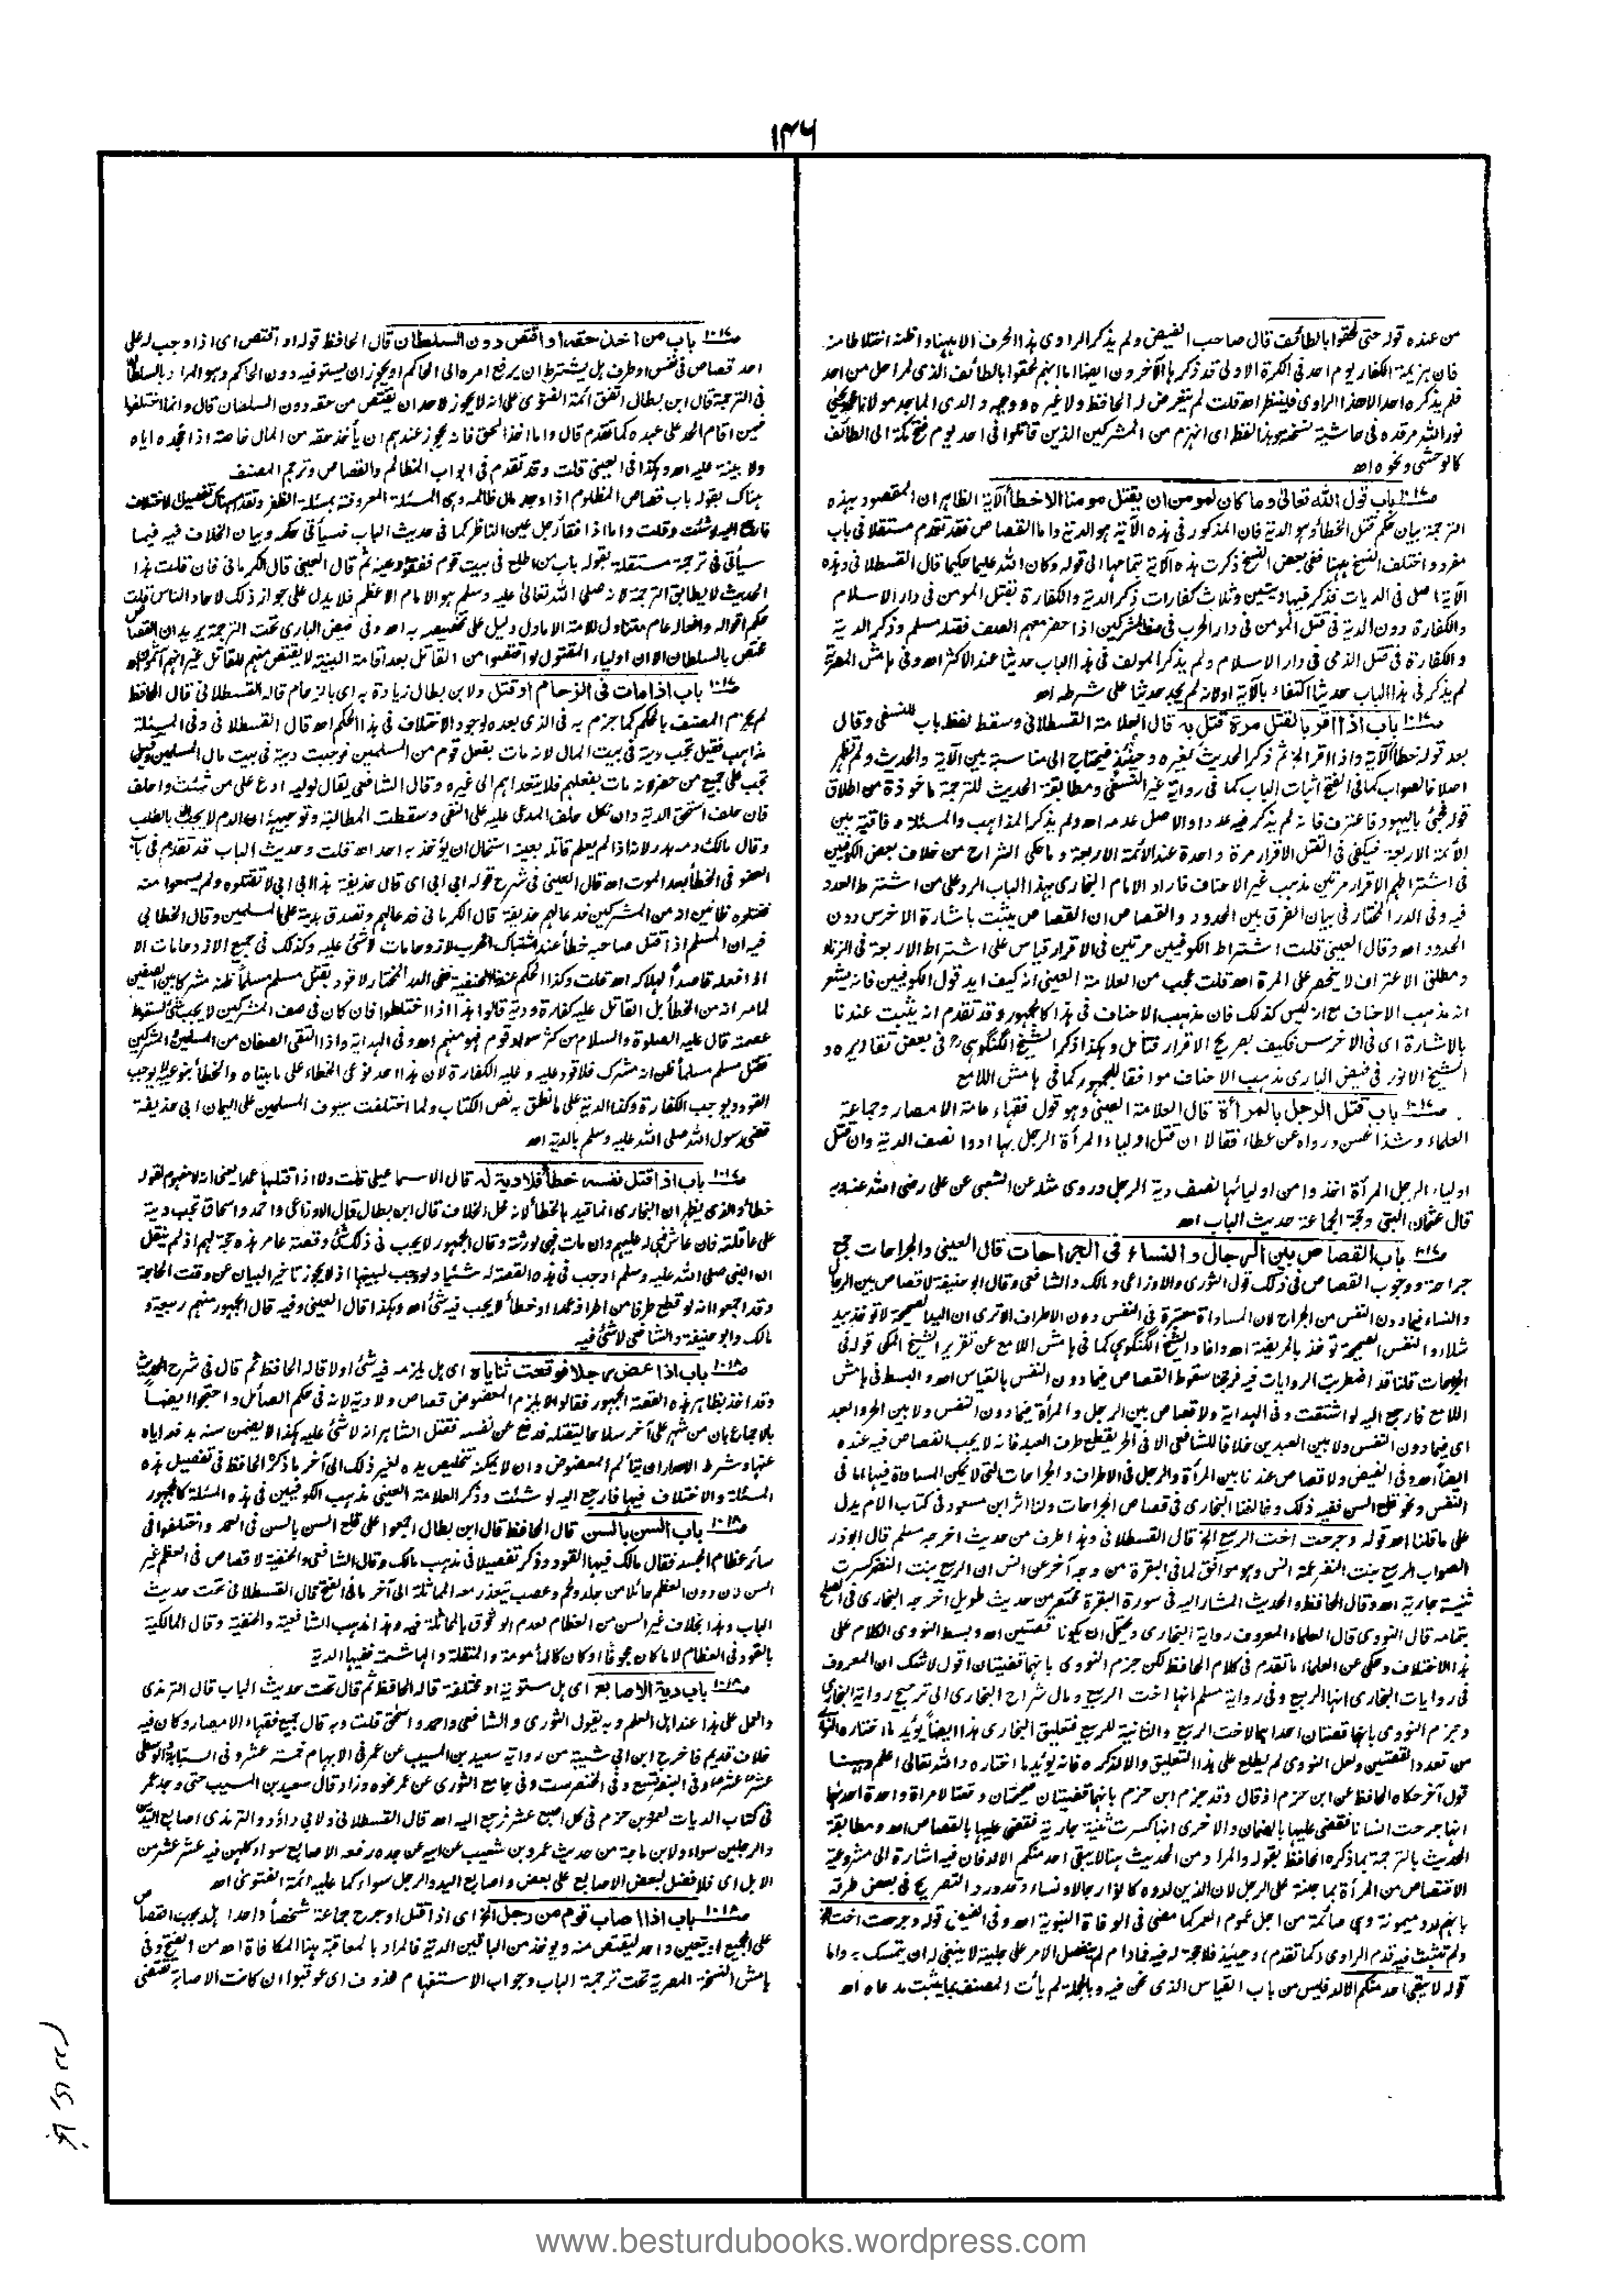 ١٤٦
من عنده قوله حتى لحقوا بالطائف قال صاحب الفيض ولم يذكر الراوى هذا الحرف الا ههنا واظنه اختلاطا منه
فان هزيمة الكفار يوم احد فى الكرة الاولى قد ذكرها الآخرون ايضا اما انهم لحقوا بالطائف الذى لمراحل من احد
فلم يذكره احد الا هذا الراوى فلينظر اهـ قلت لم يتعرض له الحافظ ولا غيره ووجهه والدى الماجد مولانا محمد يحيى
نور الله مرقده فى حاشية نسخته بهذا لفظ اى انهزم من المشركين الذين قاتلوا فى احد يوم فتح مكة الى الطائف
كالوحشى ونحوه اهـ
باب قول الله تعالى وما كان لمومن ان يقتل مومنا الا خطأ الآية الظاهر ان المقصود بهذه
الترجمة بيان حكم قتل الخطأ وهو الدية فان المذكور فى هذه الآية هو الدية واما القصاص فقد تقدم مستقلا فى باب
مفرد واختلف النسخ ههنا ففى بعض النسخ ذكرت هذه الآية بتمامها الى قوله وكان الله عليما حكيما قال القسطلانى وهذه
الآية اصل فى الديات فذكر فيها ديتين وثلاث كفارات ذكر الدية والكفارة بقتل المومن فى دار الاسلام
والكفارة دون الدية فى قتل المؤمن فى دار الحرب فى صف المشركين اذا حضر معهم الصف فقتله مسلم وذكر الدية
والكفارة فى قتل الذمى فى دار الاسلام ولم يذكر المولف فى هذا الباب حديثا عند الاكثر اهـ وفى هامش المصرية
لم يذكر فى هذا الباب حديثا اكتفاء بالآية او لانه لم يجد حديثا على شرطه اهـ
باب اذا اقر بالقتل مرة قتل به قال العلامة القسطلانى وسقط لفظ باب للنسفى وقال
بعد قوله خطأ الآية واذا اقر الخ ثم ذكر الحديث كغيره وحينئذ فيحتاج الى مناسبة بين الآية والحديث ولم تظهر
اصلا فالصواب كما فى الفتح اثبات الباب كما فى رواية غير النسفى ومطابقة الحديث للترجمة ماخوذة من اطلاق
قوله فجئ باليهود فاعترف فانه لم يذكر فيه عددا والاصل عدمه اهـ ولم يذكر المذاهب والمسئلة وفاقية بين
الائمة الاربعة فيكفى فى القتل الاقرار مرة واحدة عند الائمة الاربعة وما حكى الشراح من خلاف بعض الكوفيين
فى اشتراطهم الاقرار مرتين مذهب غير الاحناف فاراد الامام البخارى بهذا الباب الرد على من اشترط العدد
فيه وفى الدر المختار فى بيان الفرق بين الحدود والقصاص ان القصاص يثبت باشارة الاخرس دون
الحدود اهـ وقال العينى قلت اشتراط الكوفيين مرتين فى الاقرار قياس على اشتراط الاربعة فى الزنا
ومطلق الاعتراف لا ينحصر على المرة اهـ قلت عجب من العلامة العينى انه كيف ايد قول الكوفيين فانه يشعر
انه مذهب الاحناف مع انه ليس كذلك فان مذهب الاحناف فى هذا كالجمهور وقد تقدم انه يثبت عندنا
بالاشارة اى فى الاخرس فكيف بصريح الاقرار فتامل وهكذا ذكر الشيخ الگنگوهى فى بعض تقاريره و
الشيخ الانور فى فيض البارى مذهب الاحناف موافقا للجمهور كما فى هامش اللامع
باب قتل الرجل بالمرأة قال العلامة العينى وهو قول فقهاء عامة الامصار وجماعة
العلماء وشذ الحسن ورواه عن عطاء فقالا ان قتل اولياء المرأة الرجل بها ادوا نصف الدية وان قتل
اولياء الرجل المرأة اخذوا من اوليائها نصف دية الرجل وروى مثله عن الشعبى عن على رضى الله عنه وبه
قال عثمان البتى وحجة الجماعة حديث الباب اهـ
باب القصاص بين الرجال والنساء فى الجراحات قال العينى والجراحات جمع
جراحة ووجوب القصاص فى ذلك قول الثورى والاوزاعى ومالك والشافعى وقال ابو حنيفة لا قصاص بين الرجال
والنساء فيما دون النفس من الجراح لان المساواة معتبرة فى النفس دون الاطراف الا ترى ان اليد الصحيحة لا تؤخذ بيد
شلاء والنفس الصحيحة تؤخذ بالمريضة اهـ وافاد الشيخ الگنگوهى كما فى هامش اللامع عن تقرير الشيخ المكى قوله فى
الجراحات قلنا قد اضطربت الروايات فيه فرجحنا سقوط القصاص فيما دون النفس بالقياس اهـ والبسط فى هامش
اللامع فارجع اليه لو اشتقت وفى الهداية ولا قصاص بين الرجل والمرأة فيما دون النفس ولا بين الحر والعبد
اى فيما دون النفس ولا بين العبدين خلافا للشافعى الا فى الحر يقطع طرف العبد فانه لا يجب القصاص فيه عنده
ايضا اهـ وفى الفيض ولا قصاص عندنا بين المرأة والرجل فى الاطراف والجراحات التى لا يمكن المساواة فيها اما فى
النفس ونحو قلع السن ففيه ذلك وخالفنا البخارى فى قصاص الجراحات ولنا اثر ابن مسعود فى كتاب الام يدل
على ما قلنا اهـ قوله وجرحت اخت الربيع الخ قال القسطلانى وهذا طرف من حديث اخرجه مسلم قال ابوذر
الصواب الربيع بنت النضر عمة انس وهو موافق لما فى البقرة من وجه آخر عن انس ان الربيع بنت النضر كسرت
ثنية جارية اهـ وقال الحافظ والحديث المشار اليه فى سورة البقرة مختصر من حديث طويل اخرجه البخارى فى الصلح
بتمامه قال النووى قال العلماء المعروف رواية البخارى ويحتمل ان يكونا قصتين اهـ وبسط النووى الكلام على
هذا الاختلاف وحكى عن العلماء ما تقدم فى كلام الحافظ لكن جزم النووى بانهما قضيتان اقول لا شك ان المعروف
فى روايات البخارى انها الربيع وفى رواية مسلم انها اخت الربيع ومال شراح البخارى الى ترجيح رواية البخارى
وجزم النووى بانها قصتان احداهما لاخت الربيع والثانية للربيع فتعليق البخارى هذا ايضا يؤيد ما اختاره النووى
من تعدد القصتين ولعل النووى لم يطلع على هذا التعليق والا لذكره فانه يؤيد ما اختاره والله تعالى اعلم وههنا
قول آخر حكاه الحافظ عن ابن حزم اذ قال وقد جزم ابن حزم بانهما قضيتان صحيحتان وقعتا لامرأة واحدة احداهما
انها جرحت انسانا فقضى عليها بالضمان والاخرى انها كسرت ثنية جارية فقضى عليها بالقصاص اهـ ومطابقة
الحديث بالترجمة بما ذكره الحافظ بقوله والمراد من الحديث هنا لا يبقى احد منكم الا لد فان فيه اشارة الى مشروعية
الاقتصاص من المرأة بما جنته على الرجل لان الذين لدوه كانوا رجالا ونساء وقد ورد التصريح فى بعض طرقه
بانهم لدوا ميمونة وهى صائمة من اجل عموم الامر كما مضى فى الوفاة النبوية اهـ وفى الفيض قوله وجرحت اخت الخ
ولم تثبت فيه قدم الراوى (كما تقدم) وحينئذ فلا حجة له فيه فمادام لم ينفصل الامر على جلية لا ينبغى له ان يتمسك به واما
قوله لا يبقى احد منكم الا لد فليس من باب القياس الذى نحن فيه وبالجملة لم يأت المصنف بما يثبت مدعاه اهـ
باب من اخذ حقه او اقتص دون السلطان قال الحافظ قوله او اقتص اى اذا وجب له على
احد قصاص فى نفس او طرف هل يشترط ان يرفع امره الى الحاكم او يجوز ان يستوفيه دون الحاكم وهو المراد بالسلطان
فى الترجمة قال ابن بطال اتفق ائمة الفتوى على انه لا يجوز لاحد ان يقتص من حقه دون السلطان قال وانما اختلفوا
فيمن اقام الحد على عبده كما تقدم قال واما اخذ الحق فانه يجوز عندهم ان يأخذ حقه من المال خاصة اذا جحده اياه
ولا بينة عليه اهـ وهكذا فى العينى قلت وقد تقدم فى ابواب المظالم والقصاص وترجم المصنف
هناك بقوله باب قصاص المظلوم اذا وجد مال ظالمه وهى المسئلة المعروفة بمسئلة الظفر وتقدم هناك تفصيل الاختلاف
فارجع اليه لو شئت وقلت واما اذا فقأ رجل عين الناظر كما فى حديث الباب فسيأتى حكمه وبيان الخلاف فيه فيما
سيأتى فى ترجمة مستقلة بقوله باب من اطلع فى بيت قوم ففقؤا عينه ثم قال العينى قال الكرمانى فان قلت هذا
الحديث لا يطابق الترجمة لانه صلى الله تعالى عليه وسلم هو الامام الاعظم فلا يدل على جواز ذلك لاحاد الناس قلت
حكم اقواله وافعاله عام متناول للامة الا ما دل دليل على تخصيصه به اهـ وفى فيض البارى تحت الترجمة يريد ان القصاص
مختص بالسلطان الا ان اولياء المقتول لو اقتصوا من القاتل بعد اقامة البينة لا يقتص منهم للقاتل غير انهم آثموا اهـ
باب اذا مات فى الزحام او قتل ولابن بطال زيادة به اى بالزحام قاله القسطلانى قال الحافظ
لم يجزم المصنف بالحكم كما جزم به فى الذى بعده لوجود الاختلاف فى هذا الحكم اهـ قال القسطلانى وفى المسئلة
مذاهب فقيل تجب ديته فى بيت المال لانه مات بفعل قوم من المسلمين فوجبت ديته فى بيت مال المسلمين وقيل
تجب على جميع من حضر لانه مات بفعلهم فلا يتعداهم الى غيره وقال الشافعى يقال لوليه ادع على من شئت واحلف
فان حلف استحق الدية وان نكل حلف المدعى عليه على النفى وسقطت المطالبة وتوجيهه ان الدم لا يجب الا بالطلب
وقال مالك دمه هدر لانه اذا لم يعلم قاتله بعينه استحال ان يؤخذ به احد اهـ قلت وحديث الباب قد تقدم فى باب
العفو فى الخطأ بعد الموت اهـ قال العينى فى شرح قوله ابى ابى اى قال حذيفة هذا ابى ابى لا تقتلوه ولم يسمعوا منه
فقتلوه ظانين انه من المشركين فدعا لهم حذيفة قال الكرمانى فدعا لهم وتصدق بديته على المسلمين وقال الخطابى
فيه ان المسلم اذا قتل صاحبه خطأ عند اشتباك الحرب لا شئ عليه وكذلك فى جميع الازدحامات الا
اذا فعله قاصدا لهلاكه اهـ قلت وكذا الحكم عند الحنفية ففى الدر المختار لا قود بقتل مسلم مسلما ظنه مشركا بين الصفين
لما مر انه من الخطأ بل القاتل عليه كفارة ودية قالوا هذا اذا اختلطوا فان كان فى صف المشركين لا يجب شئ لسقوط
عصمته قال عليه الصلوة والسلام من كثر سواد قوم فهو منهم اهـ وفى الهداية واذا التقى الصفان من المسلمين والمشركين
فقتل مسلم مسلما ظن انه مشرك فلا قود عليه وعليه الكفارة لان هذا احد نوعى الخطاء على ما بيناه والخطأ بنوعيه لا يوجب
القود ويوجب الكفارة وكذا الدية على ما نطق به نص الكتاب ولما اختلفت سيوف المسلمين على اليمان ابى حذيفة
قضى رسول الله صلى الله عليه وسلم بالدية اهـ
باب اذا قتل نفسه خطأ فلا دية له قال الاسماعيلى قلت ولا اذا قتلها عمدا يعنى انه لا مفهوم لقوله
خطأ والذى يظهر ان البخارى انما قيد بالخطأ لانه محل الخلاف قال ابن بطال قال الاوزاعى واحمد واسحاق تجب ديته
على عاقلته فان عاش فهى له عليهم وان مات فهى لورثته وقال الجمهور لا يجب فى ذلك شئ وقصة عامر هذه حجة لهم اذ لم ينقل
ان النبى صلى الله عليه وسلم اوجب فى هذه القصة له شئيا ولو وجب لبينها اذ لا يجوز تاخير البيان عن وقت الحاجة
وقد اجمعوا انه لو قطع طرفا من اطرافه عمدا او خطأ لا يجب فيه شئ اهـ وهكذا قال العينى وفيه قال الجمهور منهم ربيعة و
مالك وابو حنيفة والشافعى لا شئ فيه
باب اذا عض رجلا فوقعت ثناياه اى هل يلزمه فيه شئ او لا قاله الحافظ ثم قال فى شرح الحديث
وقد اخذ بظاهر هذه القصة الجمهور فقالوا لا يلزم المعضوض قصاص ولا دية لانه فى حكم الصائل واحتجوا ايضا
بالاجماع بان من شهر على آخر سلاحا ليقتله فدفع عن نفسه فقتل الشاهر انه لا شئ عليه فكذا لا يضمن سنه بدفعه اياه
عنها وشرط الاهدار ان يتألم المعضوض وان لا يمكنه تخليص يده بغير ذلك الى آخر ما ذكره الحافظ فى تفصيل هذه
المسئلة والاختلاف فيها فارجع اليه لو شئت وذكر العلامة العينى مذهب الكوفيين فى هذه المسئلة كالجمهور
باب السن بالسن قال الحافظ قال ابن بطال اجمعوا على قلع السن بالسن فى العمد واختلفوا فى
سائر عظام الجسد فقال مالك فيها القود وذكر تفصيلا فى مذهب مالك وقال الشافعى والحنفية لا قصاص فى العظم غير
السن لان دون العظم حائلا من جلد ولحم وعصب يتعذر معه المماثلة الى آخر ما فى الفتح قال القسطلانى تحت حديث
الباب وهذا بخلاف غير السن من العظام لعدم الوثوق بالمماثلة فيه وهذا مذهب الشافعية والحنفية وقال المالكية
بالقود فى العظام الا ما كان مجوفا او كان كالمأمومة والمنقلة والهاشمة ففيها الدية
باب دية الاصابع اى هل مستوية او مختلفة قاله الحافظ ثم قال تحت حديث الباب قال الترمذى
والعمل على هذا عند اهل العلم وبه يقول الثورى والشافعى واحمد واسحق قلت وبه قال جميع فقهاء الامصار وكان فيه
خلاف قديم فاخرج ابن ابى شيبة من رواية سعيد بن المسيب عن عمر فى الابهام خمسة عشر وفى السبابة والوسطى
عشر عشر وفى البنصر تسع وفى الخنصر ست وفى جامع الثورى عن عمر نحوه وزاد قال سعيد بن المسيب حتى وجد عمر
فى كتاب الديات لعمرو بن حزم فى كل اصبع عشر فرجع اليه اهـ قال القسطلانى ولابى داؤد والترمذى اصابع اليدين
والرجلين سواء ولابن ماجة من حديث عمرو بن شعيب عن ابيه عن جده رفعه الاصابع سواء كلهن فيه عشر عشر من
الابل اى فلا فضل لبعض الاصابع على بعض واصابع اليد والرجل سواء كما عليه ائمة الفتوى اهـ
باب اذا اصاب قوم من رجل الخ اى اذا قتل او جرح جماعة شخصا واحدا هل يجب القصاص
على الجميع او يتعين واحد ليقتص منه ويؤخذ من الباقين الدية فالمراد بالمعاقبة هنا المكافاة اهـ من الفتح وفى
هامش النسخة المصرية تحت ترجمة الباب وجواب الاستفهام محذوف اى عوقبوا ان كانت الاصابة تقتضى
www.besturdubooks.wordpress.com